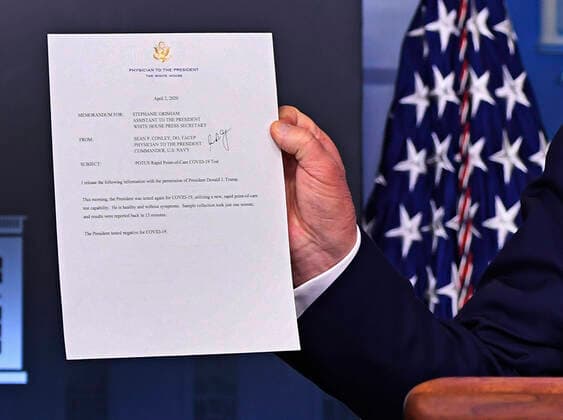 PHYSICIAN TO THE PRESIDENT
THE WHITE HOUSE
April 2, 2020
MEMORANDUM FOR: STEPHANIE GRISHAM
ASSISTANT TO THE PRESIDENT
WHITE HOUSE PRESS SECRETARY
FROM: SEAN P. CONLEY, DO, FACEP
PHYSICIAN TO THE PRESIDENT
COMMANDER, U.S. NAVY
SUBJECT: POTUS Rapid Point-of-Care COVID-19 Test
I release the following information with the permission of President Donald J. Trump.
This morning, the President was tested again for COVID-19, utilizing a new, rapid point-of-care
test capability. He is healthy and without symptoms. Sample collection took just one minute,
and results were reported back in 15 minutes.
The President tested negative for COVID-19.